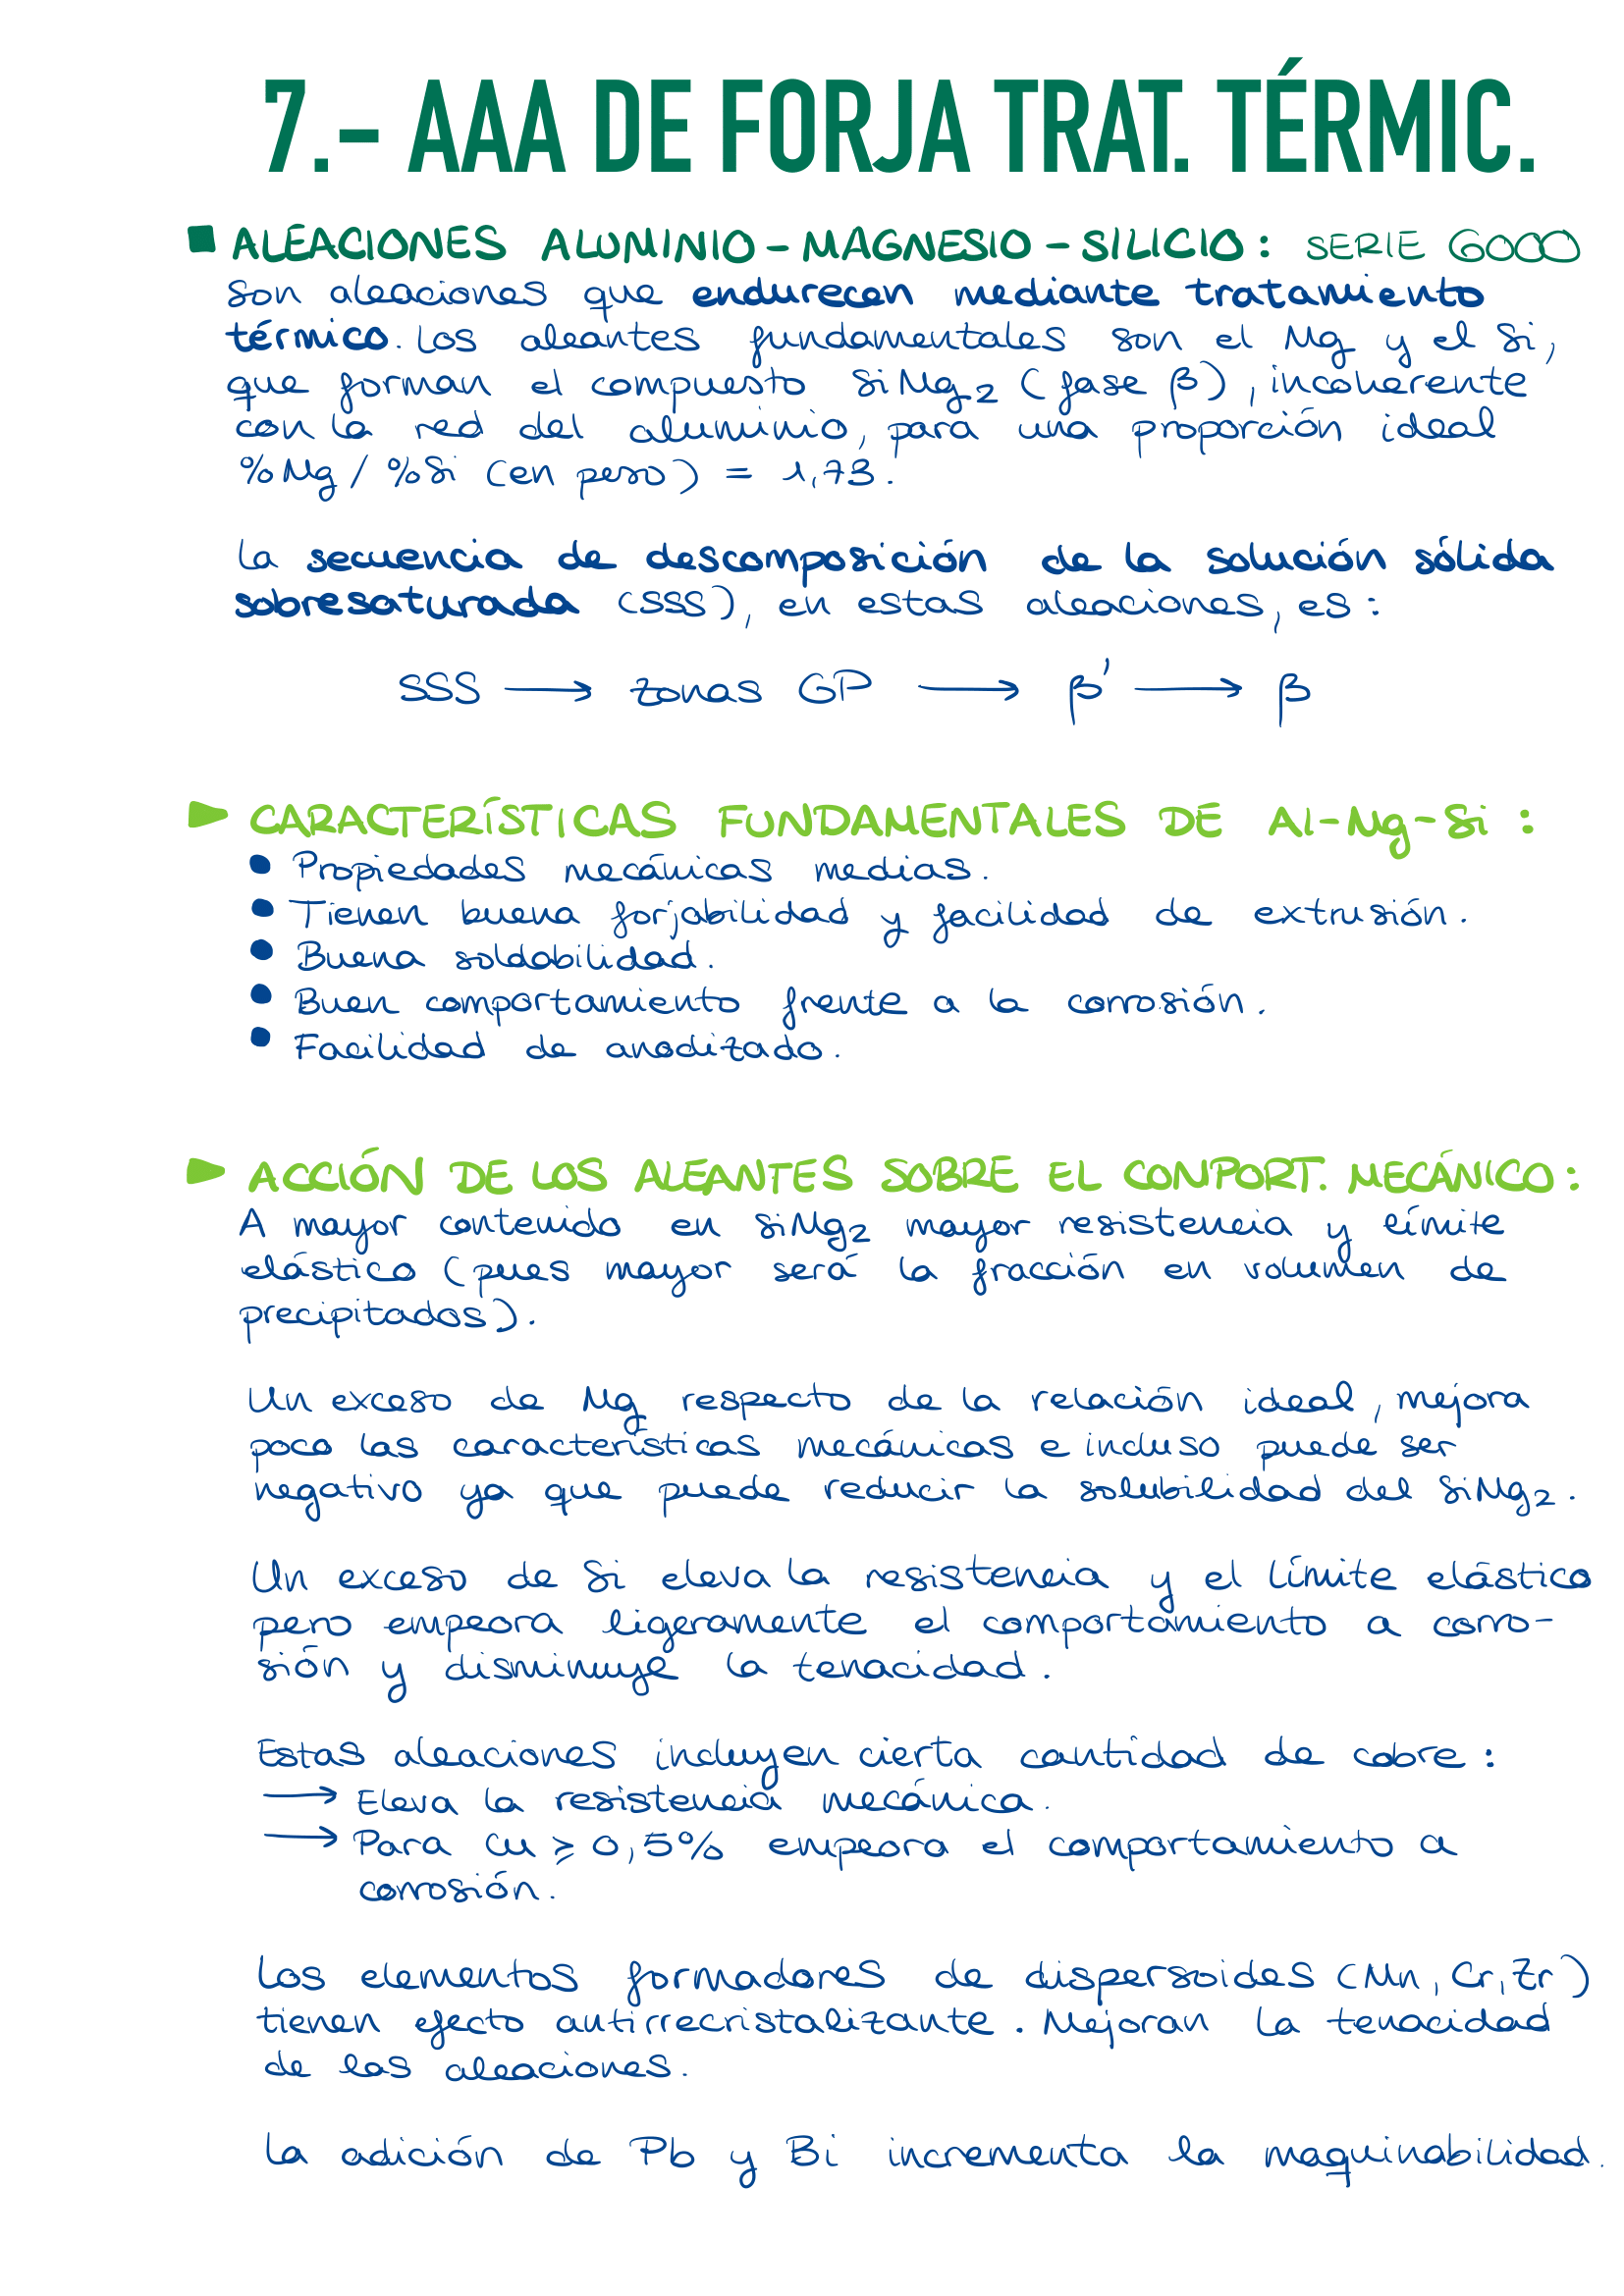 7.- AAA DE FORJA TRAT. TÉRMIC.
■ ALEACIONES ALUMINIO-MAGNESIO-SILICIO: SERIE 6000
Son aleaciones que endurecen mediante tratamiento
térmico. Los aleantes fundamentales son el Mg y el Si,
que forman el compuesto SiMg₂ (fase β), incoherente
con la red del aluminio, para una proporción ideal
%Mg / %Si (en peso) = 1,73.
La secuencia de descomposición de la solución sólida
sobresaturada (SSS), en estas aleaciones, es:
SSS → zonas GP → β' → β
► CARACTERÍSTICAS FUNDAMENTALES DE Al-Mg-Si:
• Propiedades mecánicas medias.
• Tienen buena forjabilidad y facilidad de extrusión.
• Buena soldabilidad.
• Buen comportamiento frente a la corrosión.
• Facilidad de anodizado.
► ACCIÓN DE LOS ALEANTES SOBRE EL CONPORT. MECÁNICO:
A mayor contenido en SiMg₂ mayor resistencia y límite
elástico (pues mayor será la fracción en volumen de
precipitados).
Un exceso de Mg respecto de la relación ideal, mejora
poco las características mecánicas e incluso puede ser
negativo ya que puede reducir la solubilidad del SiMg₂.
Un exceso de Si eleva la resistencia y el límite elástico
pero empeora ligeramente el comportamiento a corro-
sión y disminuye la tenacidad.
Estas aleaciones incluyen cierta cantidad de cobre:
→ Eleva la resistencia mecánica.
→ Para Cu ⩾ 0,5% empeora el comportamiento a
corrosión.
Los elementos formadores de dispersoides (Mn, Cr, Zr)
tienen efecto antirrecristalizante. Mejoran la tenacidad
de las aleaciones.
La adición de Pb y Bi incrementa la maquinabilidad.